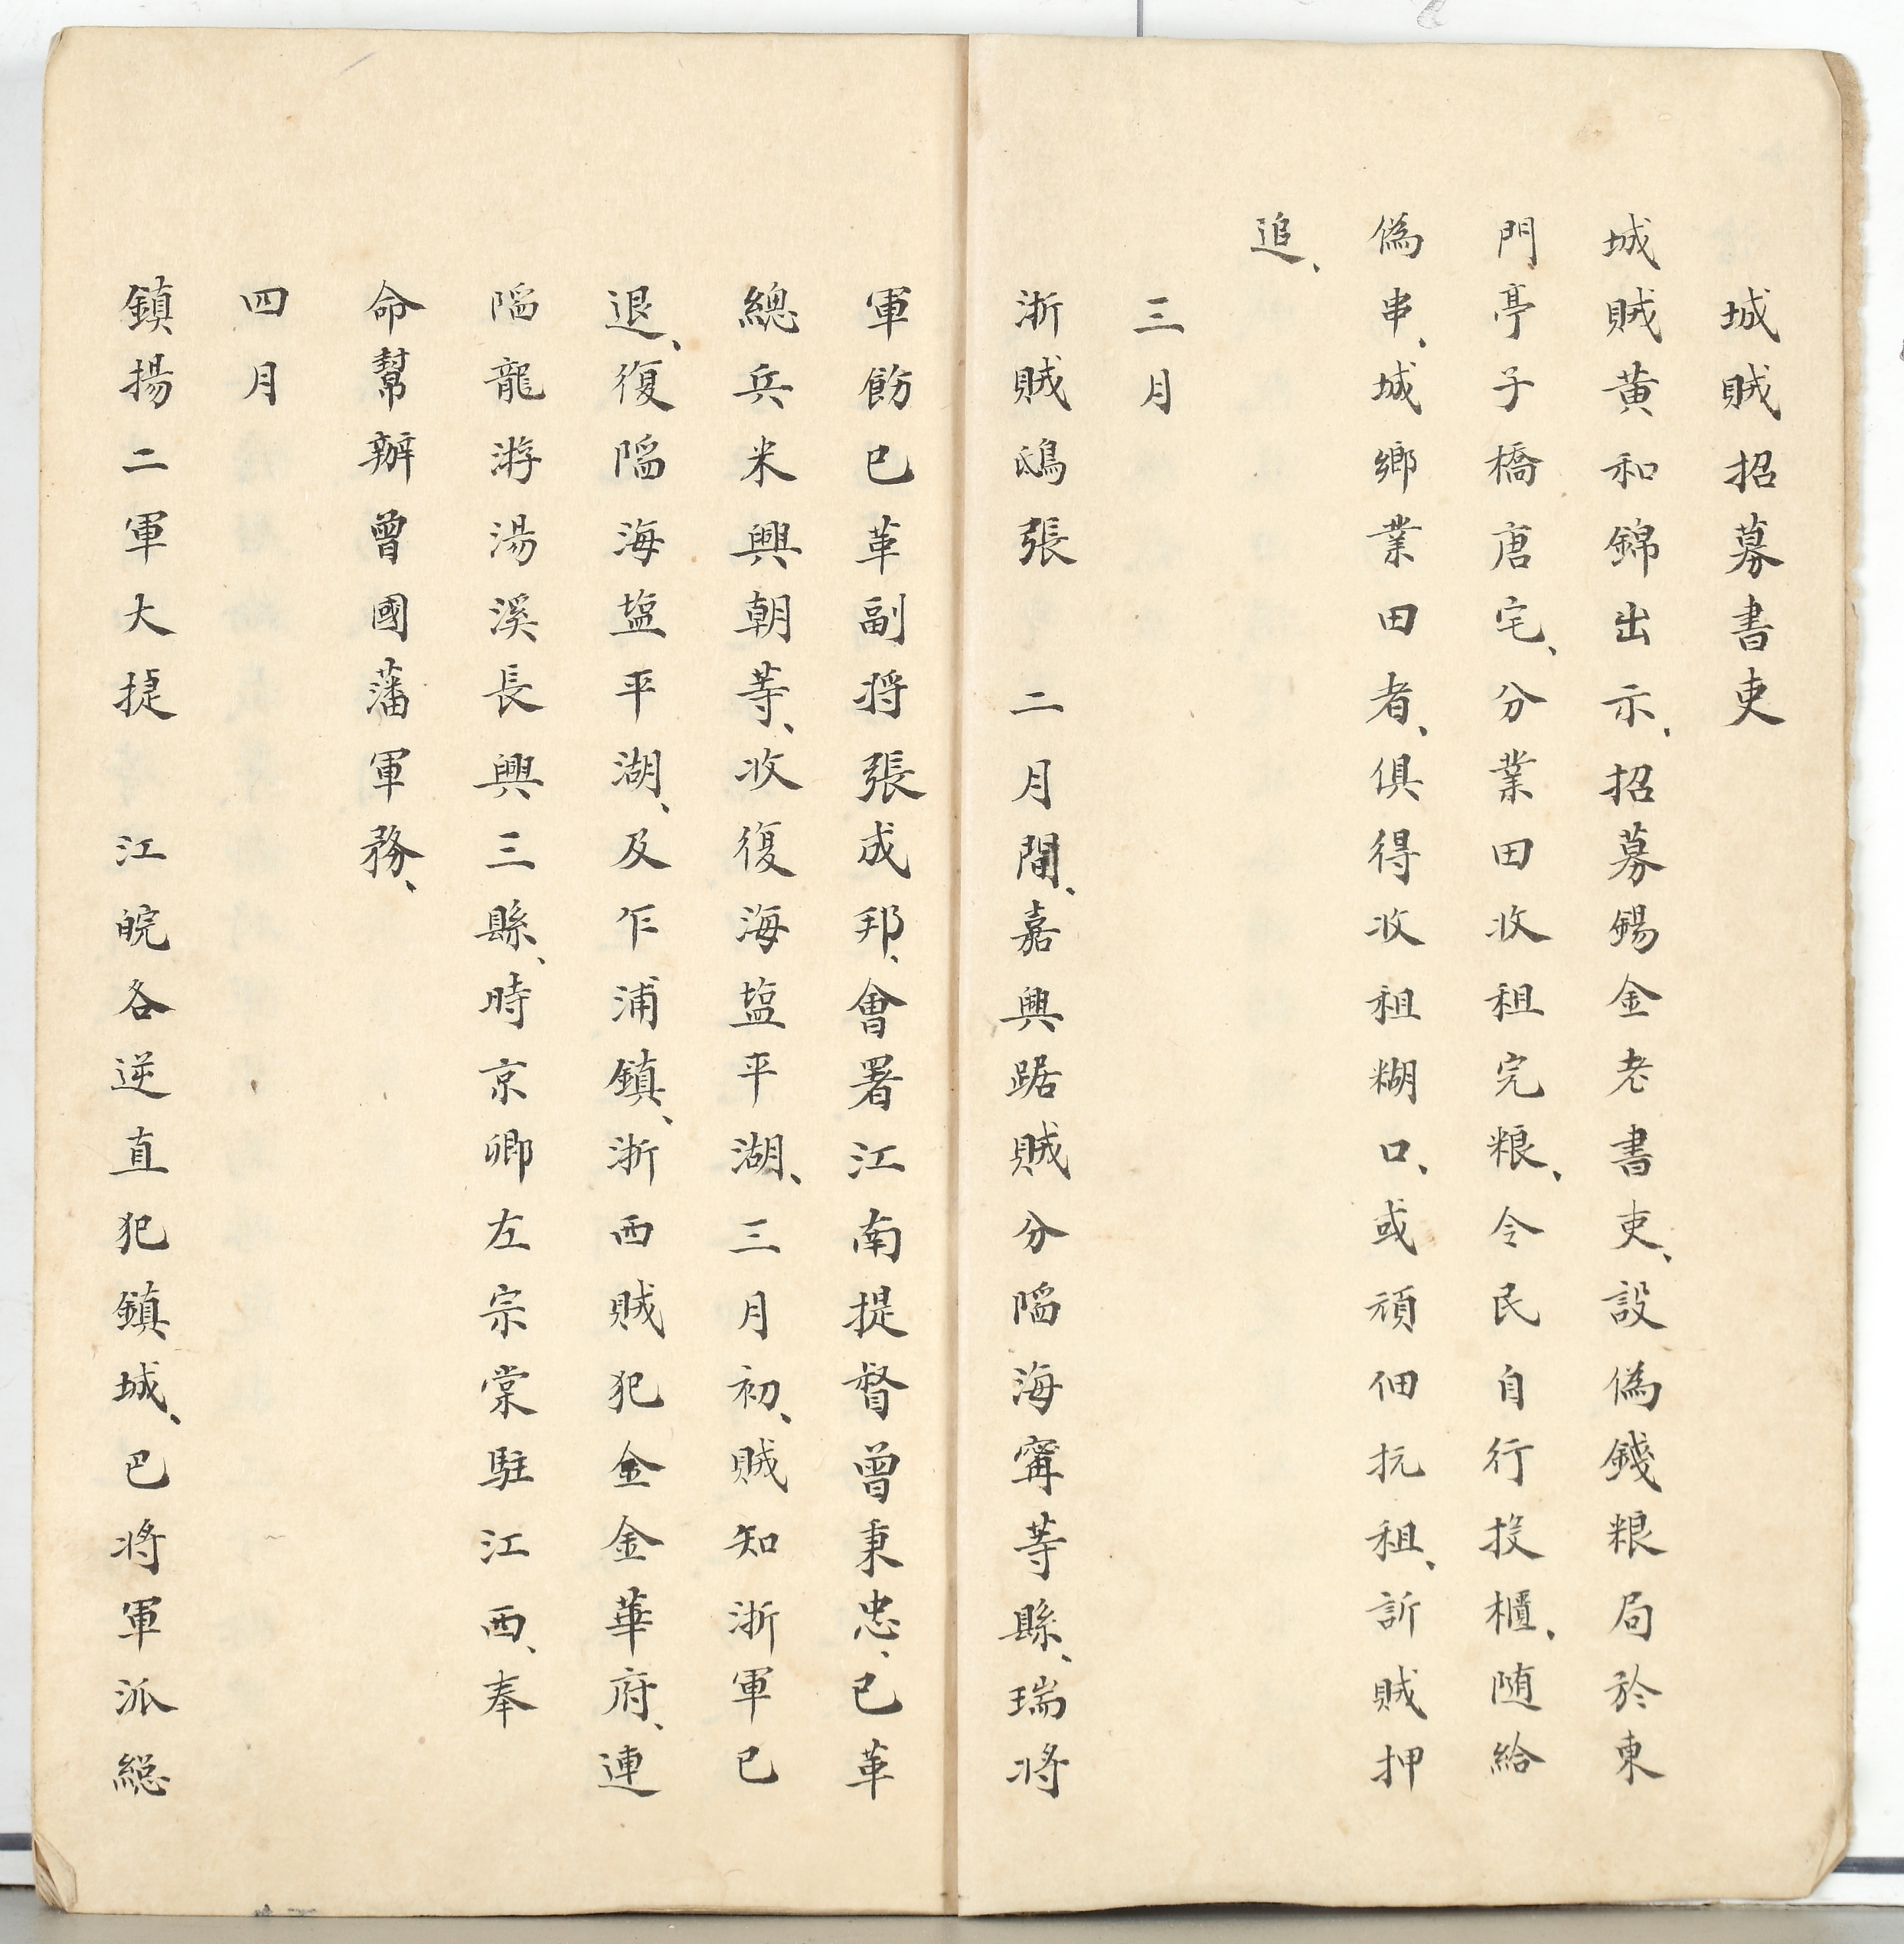 城賊招募書吏
城賊黃和錦出示、招募錫金老書吏、設偽錢粮局於東
門亭子橋唐宅、分業田收租完粮、令民自行投櫃、随給
偽串、城鄉業田者、俱得收租糊口、或頑佃抗租、訴賊押
追、
三月
浙賊鴟張　二月間、嘉興踞賊分陷海寧等縣、瑞將
軍飭已革副將張成邦、會署江南提督曾秉忠、已革
總兵米興朝等、收復海塩平湖、三月初、賊知浙軍已
退、復陷海塩平湖、及乍浦鎮、浙西賊犯金金華府、連
陷龍游湯溪長興三縣、時京卿左宗棠駐江西、奉
命幫辦曾國藩軍務、
四月
鎮揚二軍大捷　江皖各逆直犯鎮城、巴將軍派総